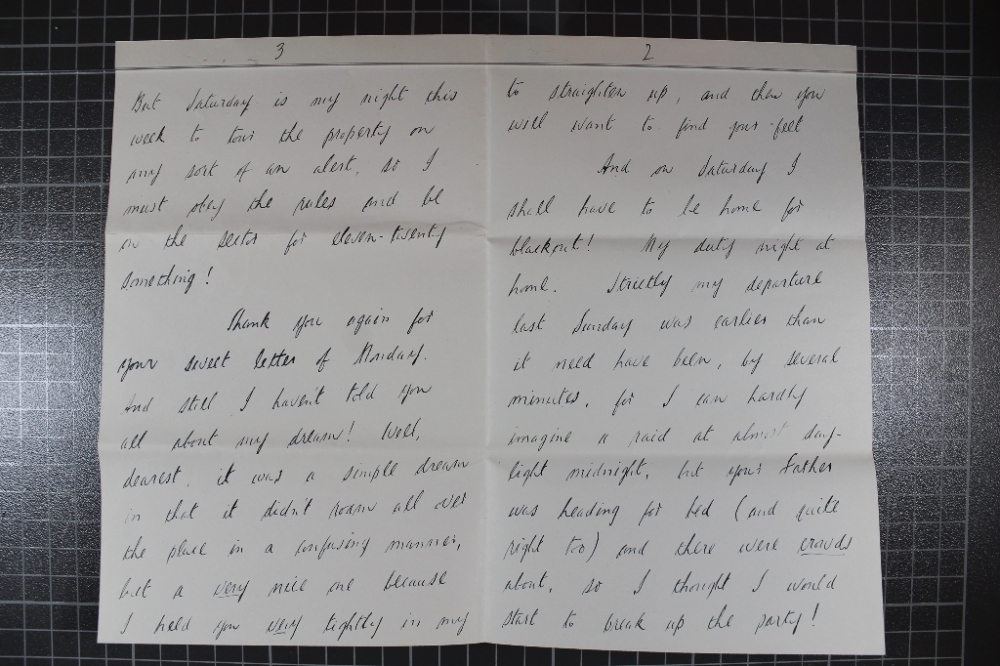 2
to straighten up, and then you
will want to find your feet
And on Saturday I
shall have to be home for
blackout! My duty night at
home. Strictly my departure
last Sunday was earlier than
it need have been, by several
minutes, for I can hardly
imagine a raid at almost day-
light midnight, but your Father
was heading for bed (and quite
right too) and there were crowds
about, so I thought I would
start to break up the party!
3
But Saturday is my night this
week to tour the property on
any sort of an alert, so I
must obey the rules and be
on the sector for eleven-twenty
something!
Thank you again for
your sweet letter of Monday.
And still I haven't told you
all about my dream! Well,
dearest, it was a simple dream
in that it didn't roam all over
the place in a confusing manner,
but a very nice one because
I held you very tightly in my